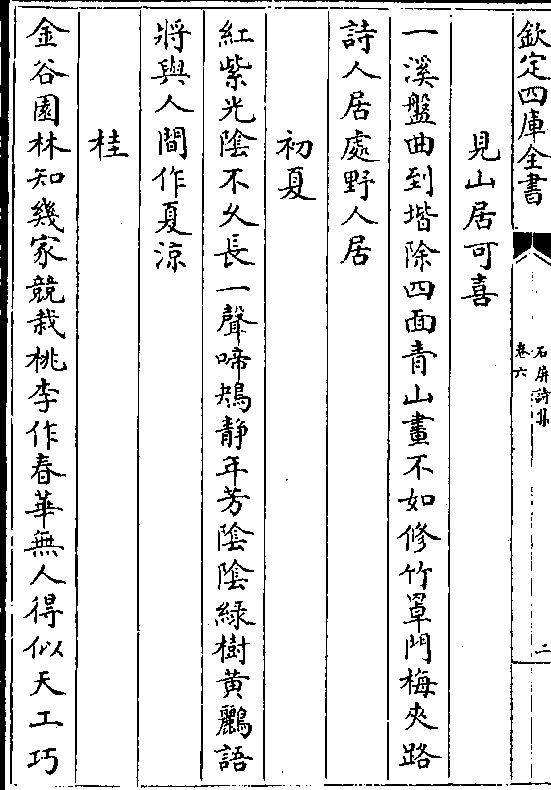 欽定四庫全書
石屏詩集
卷六
二
見山居可喜
一溪盤曲到堦除四面青山畫不如修竹罩門梅夾路
詩人居處野人居
初夏
紅紫光陰不久長一聲啼鴂静年芳陰陰緑樹黄鸝語
將與人間作夏凉
桂
金谷園林知幾家競栽桃李作春華無人得似天工巧